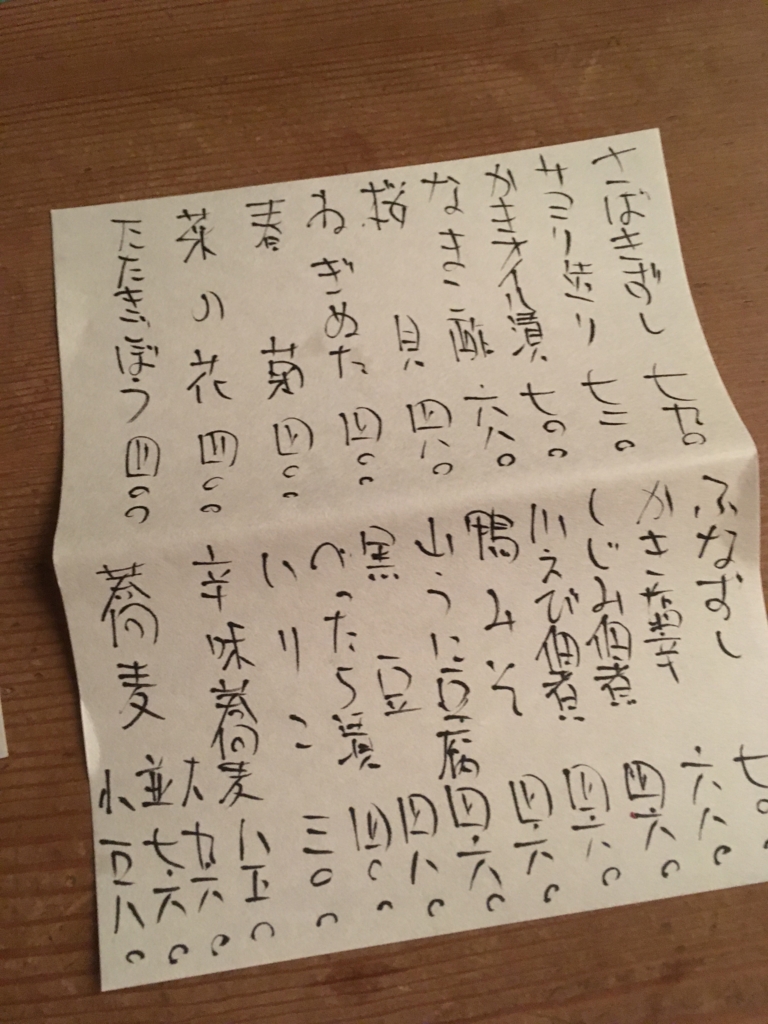 さばきずし 七五〇
サヨリ造り 七三〇
かきオイル漬 七〇〇
なまこ酢 六八〇
桜貝 四八〇
ねぎぬた 四〇〇
春菊 四〇〇
菜の花 四〇〇
たたきごぼう 四〇〇
ふなずし 七〇〇
かき 六八〇
しじみ佃煮 四六〇
川えび佃煮 四六〇
鴨みそ 四六〇
山うに豆腐 四六〇
黒豆 四八〇
べったら漬 四〇〇
いりこ 三〇〇
辛味蕎麦 八五〇
蕎麦 大 九六〇
並 七六〇
小 五八〇